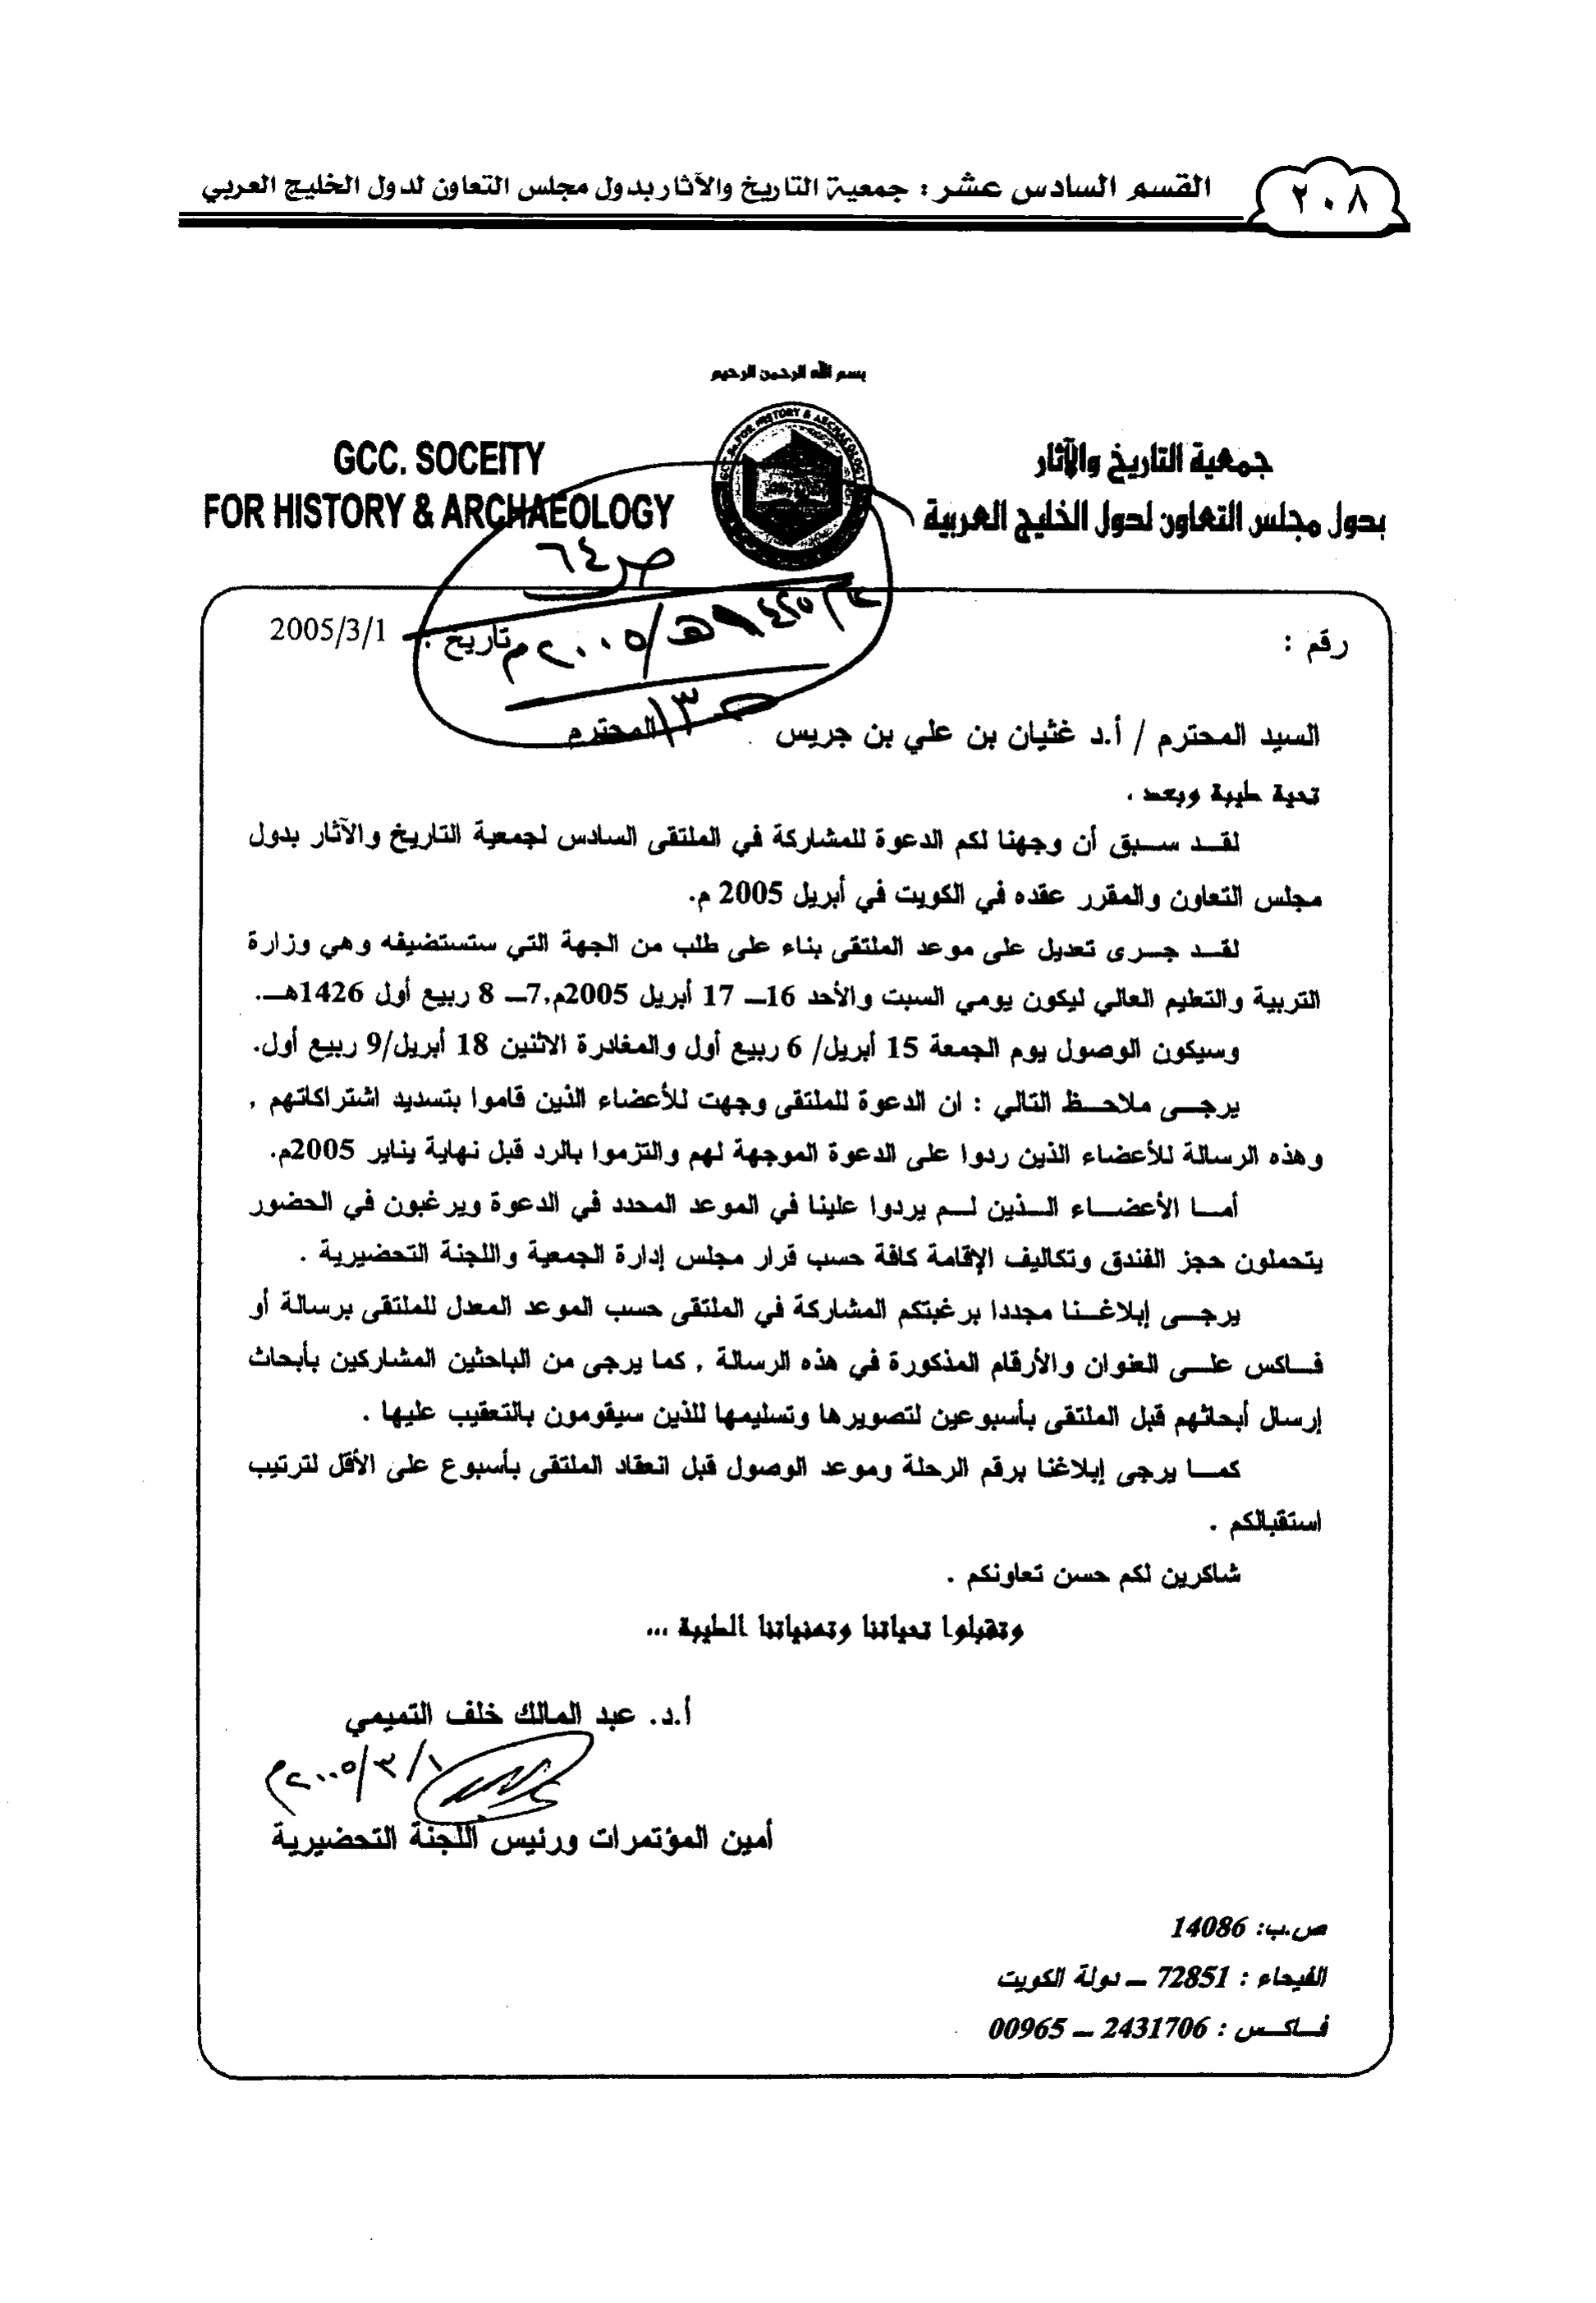 ٢٠٨
القسم السادس عشر : جمعية التاريخ والآثار بدول مجلس التعاون لدول الخليج العربي
بسم الله الرحمن الرحيم
جمعية التاريخ والآثار
بدول مجلس التعاون لدول الخليج العربية
GCC. SOCEITY
FOR HISTORY & ARCHAEOLOGY
ص ٦٤
رقم :
تاريخ : 2005/3/1
هـ/٢٠٠٥م
ص ١٣
السيد المحترم / أ.د غثيان بن علي بن جريس المحترم
تحية طيبة وبعد ،
لقد سبق أن وجهنا لكم الدعوة للمشاركة في الملتقى السادس لجمعية التاريخ والآثار بدول
مجلس التعاون والمقرر عقده في الكويت في أبريل 2005 م.
لقد جرى تعديل على موعد الملتقى بناء على طلب من الجهة التي ستستضيفه وهي وزارة
التربية والتعليم العالي ليكون يومي السبت والأحد 16– 17 أبريل 2005م,7– 8 ربيع أول 1426هـ.
وسيكون الوصول يوم الجمعة 15 أبريل/ 6 ربيع أول والمغادرة الاثنين 18 أبريل/9 ربيع أول.
يرجى ملاحظ التالي : ان الدعوة للملتقى وجهت للأعضاء الذين قاموا بتسديد اشتراكاتهم ,
وهذه الرسالة للأعضاء الذين ردوا على الدعوة الموجهة لهم والتزموا بالرد قبل نهاية يناير 2005م.
أما الأعضاء الذين لم يردوا علينا في الموعد المحدد في الدعوة ويرغبون في الحضور
يتحملون حجز الفندق وتكاليف الإقامة كافة حسب قرار مجلس إدارة الجمعية واللجنة التحضيرية .
يرجى إبلاغنا مجددا برغبتكم المشاركة في الملتقى حسب الموعد المعدل للملتقى برسالة أو
فاكس على العنوان والأرقام المذكورة في هذه الرسالة , كما يرجى من الباحثين المشاركين بأبحاث
إرسال أبحاثهم قبل الملتقى بأسبوعين لتصويرها وتسليمها للذين سيقومون بالتعقيب عليها .
كما يرجى إبلاغنا برقم الرحلة وموعد الوصول قبل انعقاد الملتقى بأسبوع على الأقل لترتيب
استقبالكم .
شاكرين لكم حسن تعاونكم .
وتقبلوا تحياتنا وتمنياتنا الطيبة ...
أ.د. عبد المالك خلف التميمي
١/٣/٢٠٠٥م
أمين المؤتمرات ورئيس اللجنة التحضيرية
ص.ب: 14086
الفيحاء : 72851 – دولة الكويت
فاكس : 2431706 – 00965